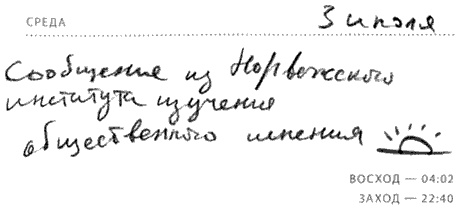 СРЕДА 3 июля
Сообщение из Норвежского
института изучения
общественного мнения
ВОСХОД — 04:02
ЗАХОД — 22:40